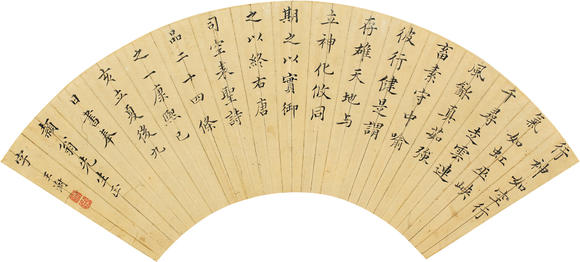 行神如空行
氣如虹巫峽
千尋走雲連
風飲真茹強
畜素守中喻
彼行健是謂
存雄天地与
立神化攸同
期之以實御
之以終右唐
司空表聖詩
品二十四條
之一康熙己
亥立夏後九
日書奉
翁先生正
字 王澍